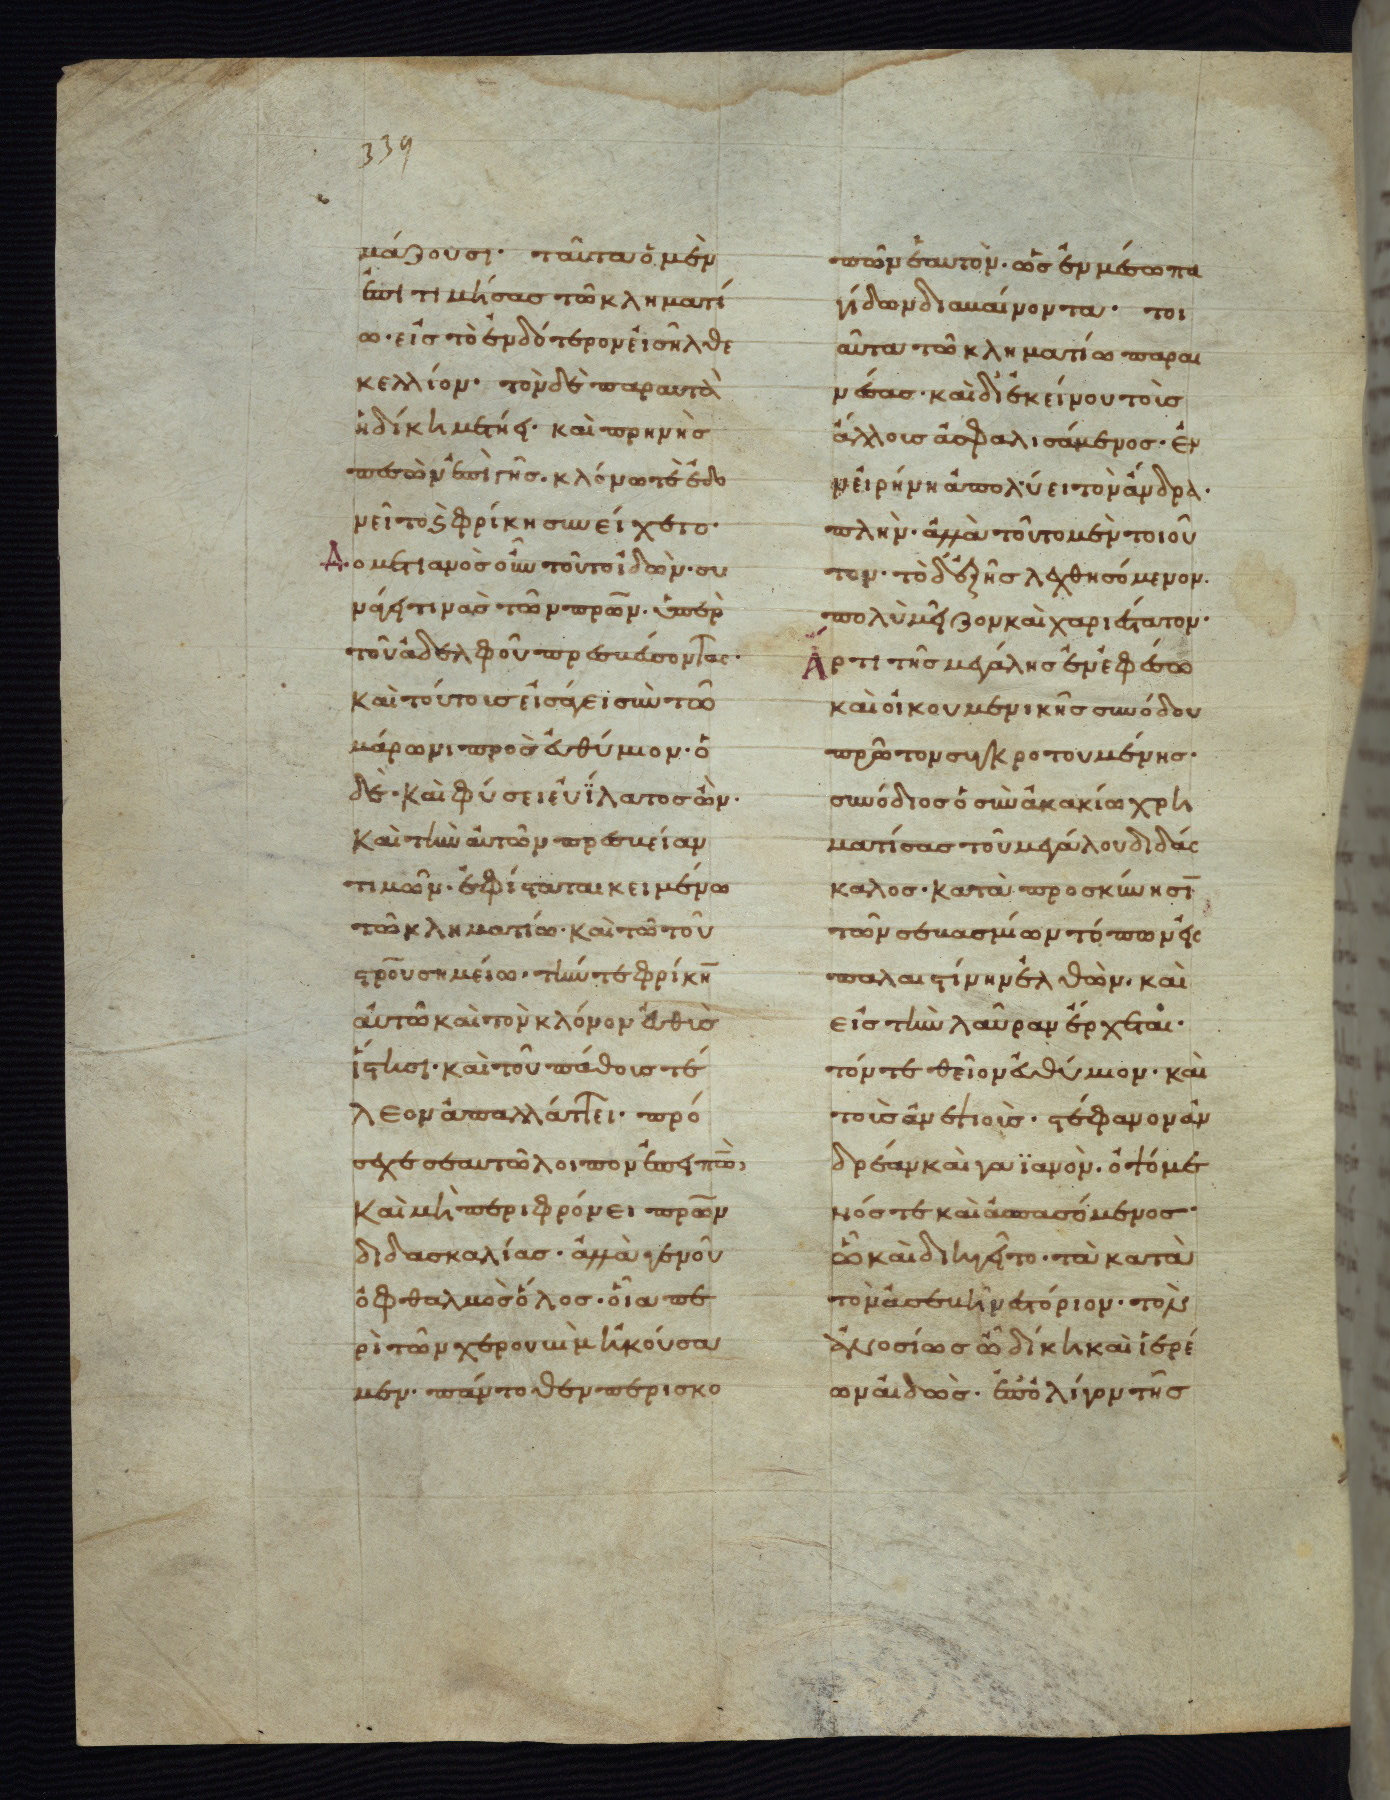 339
μάζουσι· ταῦτα ὁ μὲν
ἐπιτιμήσας τῶ κληματί
ω· εἰς τὸ ἐνδότερον εἰσῆλθε
κελλίον· τὸν δὲ παραυτὰ
ἡ δίκη μέτηει· καὶ πρηνὴς
πεσὼν ἐπὶ γῆς· κλόνω τὲ ἐδο
νεῖτο ϗ φρίκη συνείχετο·
Δομετιανὸς οὖν τοῦτο ἰδὼν· συ
νάγει τινὰς τῶν πρων· ὑπὲρ
τοῦ ἀδελφοῦ πρεσβεύσοντας·
καὶ τούτοις εἰσάγει σὺν τῶ
μάρωνι πρὸς εὐθύμιον· ὁ
δὲ· καὶ φύσει εὐΐλατος ὢν·
καὶ τὴν αὐτῶν πρεσβείαν
τιμῶν· ἐφίσταται κειμένω
τῶ κληματίω· καὶ τῶ τοῦ
στρου σημείω· τήν τε φρίκην
αὐτῶ καὶ τὸν κλόνον εὐθὺς
ἵστησι· καὶ τοῦ πάθους τέ
λεον ἀπαλλάττει· πρό
σεχε σεαυτῶ λοιπὸν ἐπειπὼν,
καὶ μὴ περιφρόνει πρων
διδασκαλίας· ἀλλὰ γενοῦ
ὀφθαλμὸς ὅλος· οἷα πε
ρὶ τῶν χερουβὶμ ἠκούσα
μεν· πάντοθεν περισκο
πῶν ἑαυτὸν· ὡς ἐν μέσω πα
γίδων διαβαίνοντα· τοι
αῦτα τῶ κληματίω παραι
νέσας· καὶ δι' ἐκείνου τοὺς
ἄλλους ἀσφαλισάμενος· ἐν
εἰρήνη ἀπολύει τὸν ἄνδρα·
πλὴν· ἀλλὰ τοῦτο μὲν τοιοῦ
τον· τὸ δ' ἑξῆς λεχθησόμενον·
πολὺ μεῖζον καὶ χαριέστατον·
Ἄρτι τῆς μεγάλης ἐν ἐφέσω
καὶ οἰκουμενικῆς συνόδου
πρῶτον συγκροτουμένης·
συνόδιος ὁ σὺν ἀκακίω χρη
ματίσας τοῦ μεγάλου διδάσ
καλος· κατὰ προσκύνησιν
τῶν σεβασμίων τόπων εἰς
παλαιστίνην ἐλθὼν· καὶ
εἰς τὴν λαῦραν ἔρχεται·
τόν τε θεῖον εὐθύμιον· καὶ
τοὺς ἀνεψιοὺς· στέφανον ἀν
δρέαν καὶ γαϊανὸν· ὀψόμε
νός τε καὶ ἀσπασόμενος·
ὃς καὶ διηγεῖτο· τὰ κατὰ
τὸν ἀσεβῆ νεστόριον· τὸν
ἀνοσίως ὢ δίκη καὶ ἱερέ
ων αἰδὼς· ἐπ' ὀλίγον τῆς